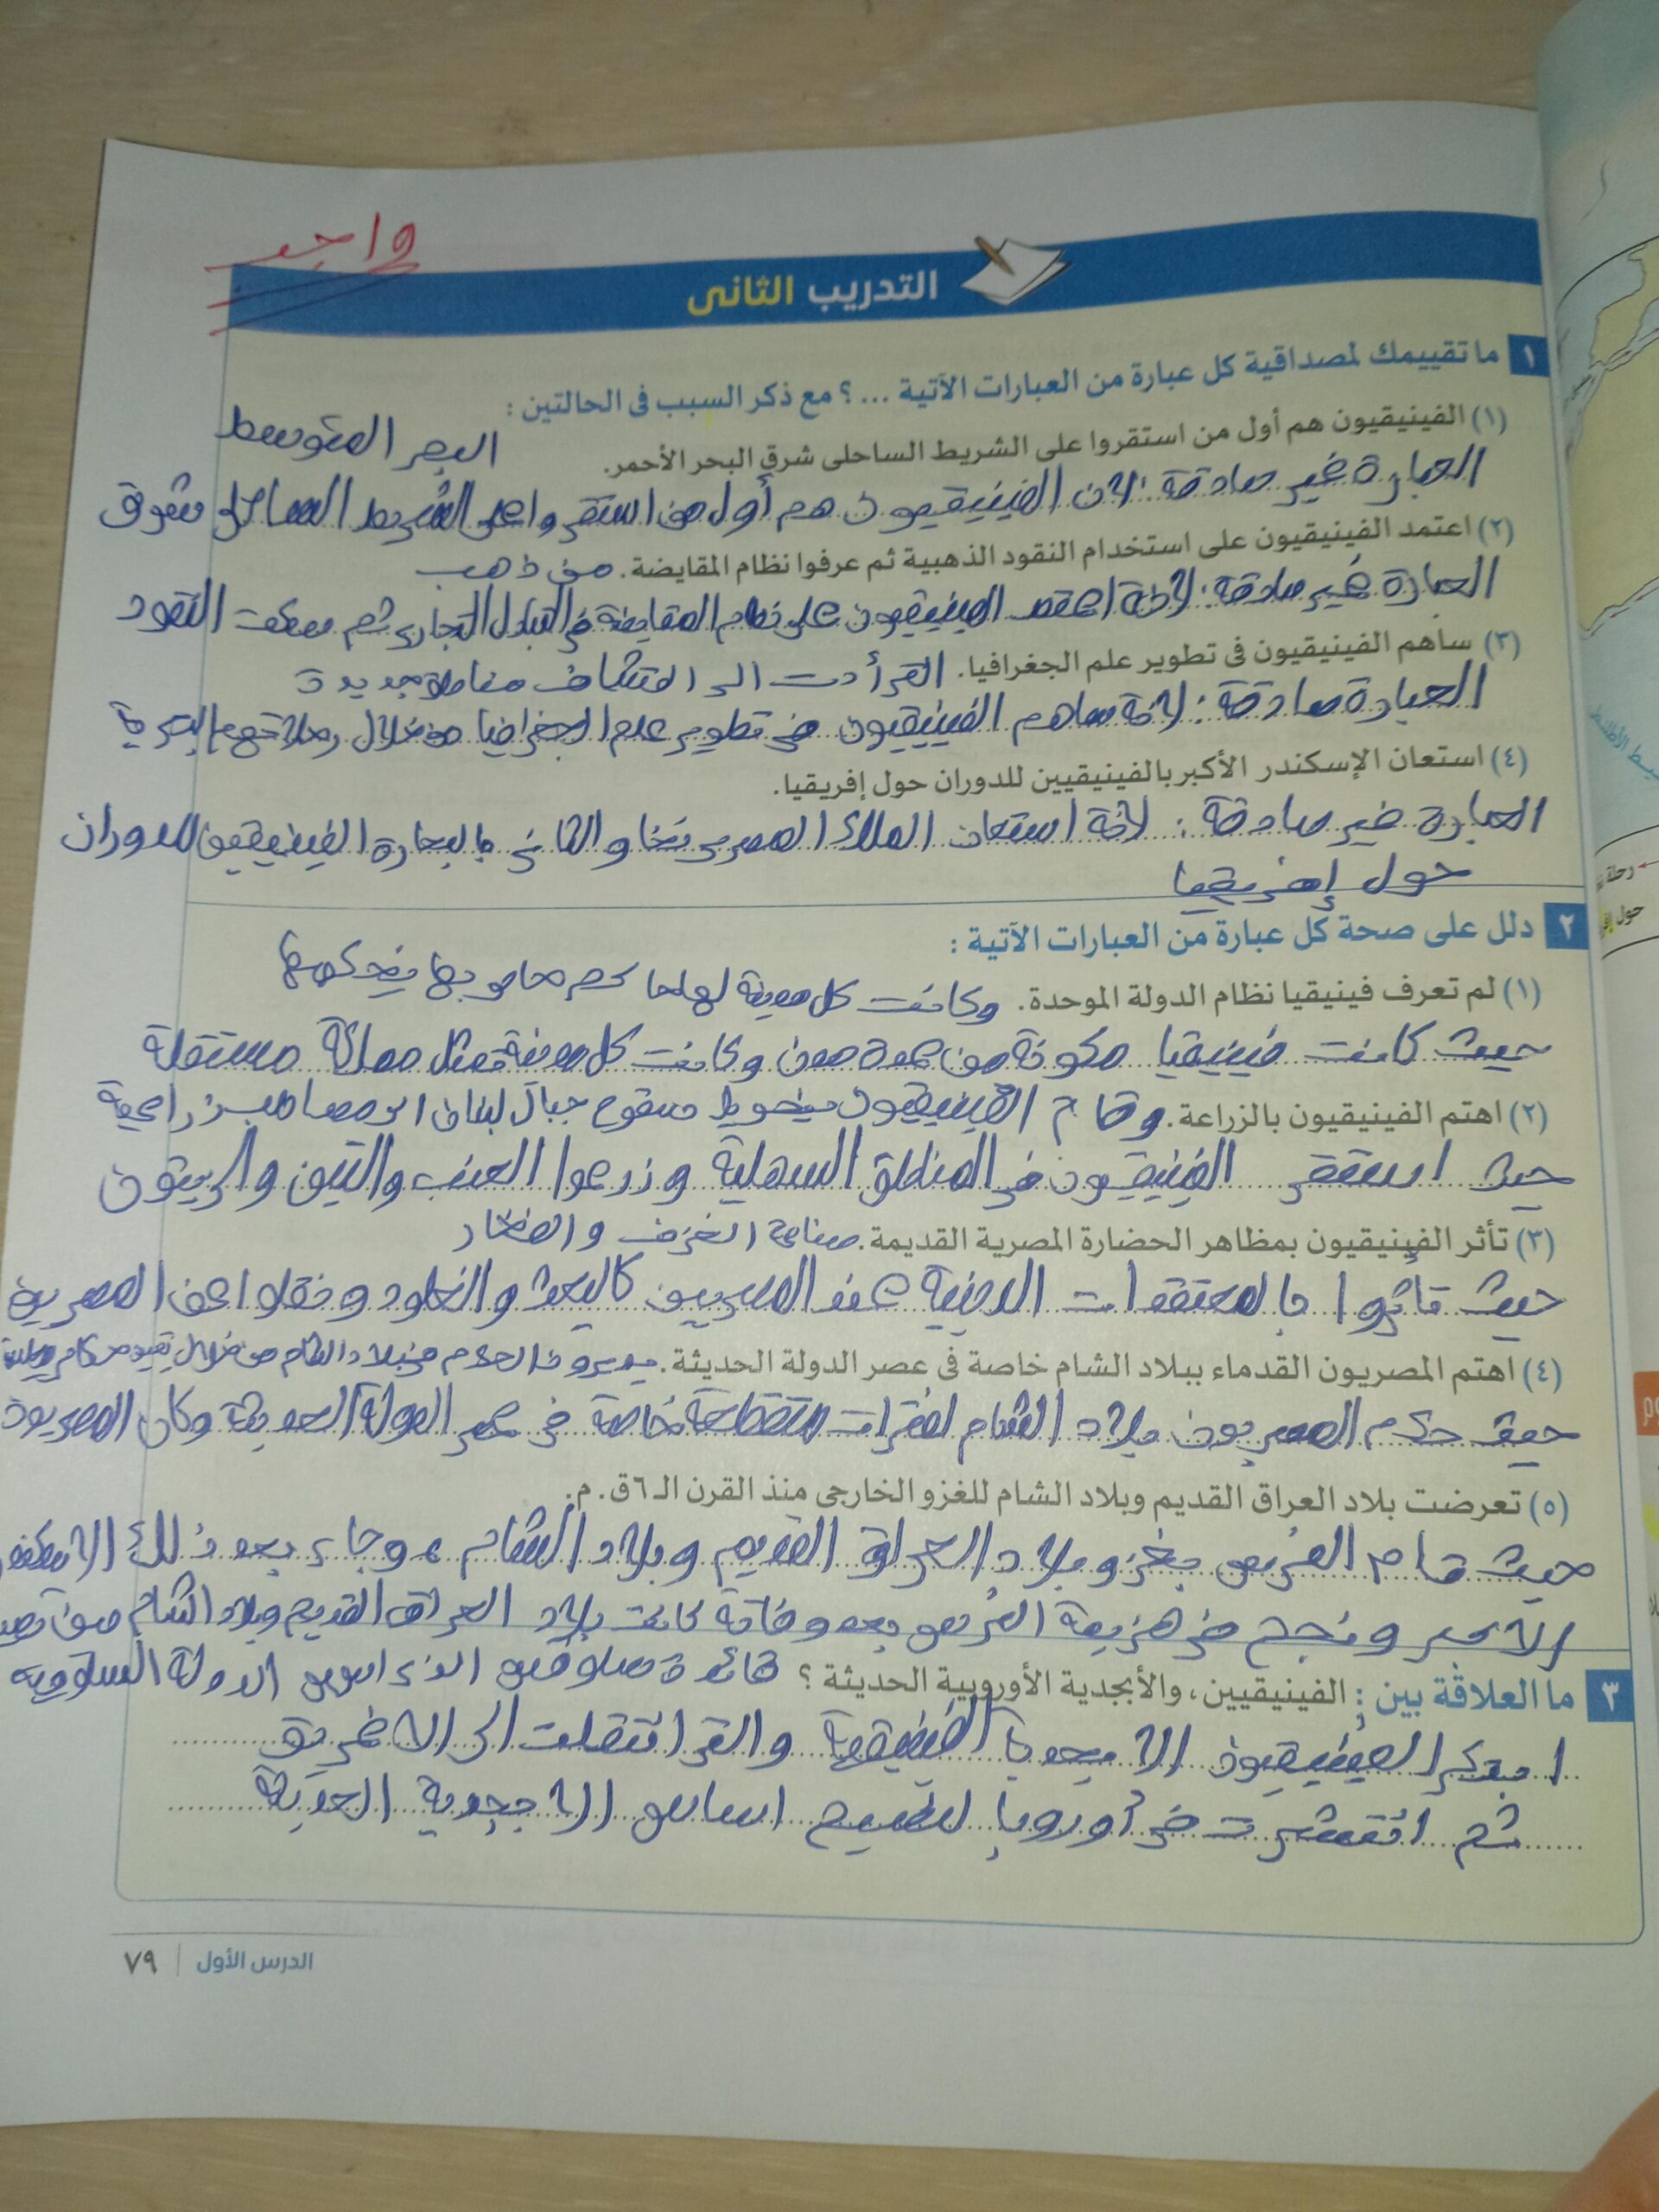 واجب
التدريب الثانى
١ ما تقييمك لمصداقية كل عبارة من العبارات الآتية ... ؟ مع ذكر السبب فى الحالتين :
(١) الفينيقيون هم أول من استقروا على الشريط الساحلى شرق البحر الأحمر.
البحر المتوسط
العبارة غير صادقة : لان الفينيقيون هم أول من استقروا على الشريط الساحلى شرق
(٢) اعتمد الفينيقيون على استخدام النقود الذهبية ثم عرفوا نظام المقايضة.
من ذهب
العبارة غير صادقة : لانه اعتمد الفينيقيون على نظام المقايضة فى التبادل التجارى ثم سكت النقود
(٣) ساهم الفينيقيون فى تطوير علم الجغرافيا.
التى أدت الى اكتشاف مناطق جديدة
العبارة صادقة : لانه ساهم الفينيقيون فى تطوير علم الجغرافيا من خلال رحلاتهم البحرية
(٤) استعان الإسكندر الأكبر بالفينيقيين للدوران حول إفريقيا.
العبارة غير صادقة : لانه استعان الملك المصرى نخاو الثانى بالبحارة الفينيقيين للدوران
حول إفريقيا
٢ دلل على صحة كل عبارة من العبارات الآتية :
(١) لم تعرف فينيقيا نظام الدولة الموحدة.
وكانت كل مدينة لها حاكم خاص بها يحكمها
حيث كانت فينيقيا مكونة من عدة مدن وكانت كل مدينة تمثل مملكة مستقلة
(٢) اهتم الفينيقيون بالزراعة.
وقام الفينيقيون سفوح جبال لبنان الى مصاطب زراعية
حيث استقر الفينيقيون فى المناطق السهلية وزرعوا العنب والتين والزيتون
(٣) تأثر الفينيقيون بمظاهر الحضارة المصرية القديمة.
صناعة الخزف والفخار
حيث تاثروا بالمعتقدات الدينية عند المصريين كالبعث والخلود ونقلوا عن المصريين
(٤) اهتم المصريون القدماء ببلاد الشام خاصة فى عصر الدولة الحديثة.
يديرون الحكم فى بلاد الشام من خلال
حيث حكم المصريون بلاد الشام لفترات متقطعة خاصة فى عصر الدولة الحديثة وكان المصريون
(٥) تعرضت بلاد العراق القديم وبلاد الشام للغزو الخارجى منذ القرن الـ ٦ ق. م.
حيث قام الفرس بغزو بلاد العراق القديم وبلاد الشام ، وجاء بعد ذلك الاسكندر
الاكبر ونجح فى هزيمة الفرس بعد وفاته كانت بلاد العراق القديم وبلاد الشام من
٣ ما العلاقة بين : الفينيقيين، والأبجدية الأوروبية الحديثة ؟
قائده سلوقس الذى اسس الدولة السلوقيه
ابتكر الفينيقيون الابجدية الفينيقية والتى انتقلت الى الاغريق
ثم انتشرت فى أوروبا لتصبح اساس الابجدية الحديثة
الدرس الأول | ٧٩
رحلة
حول